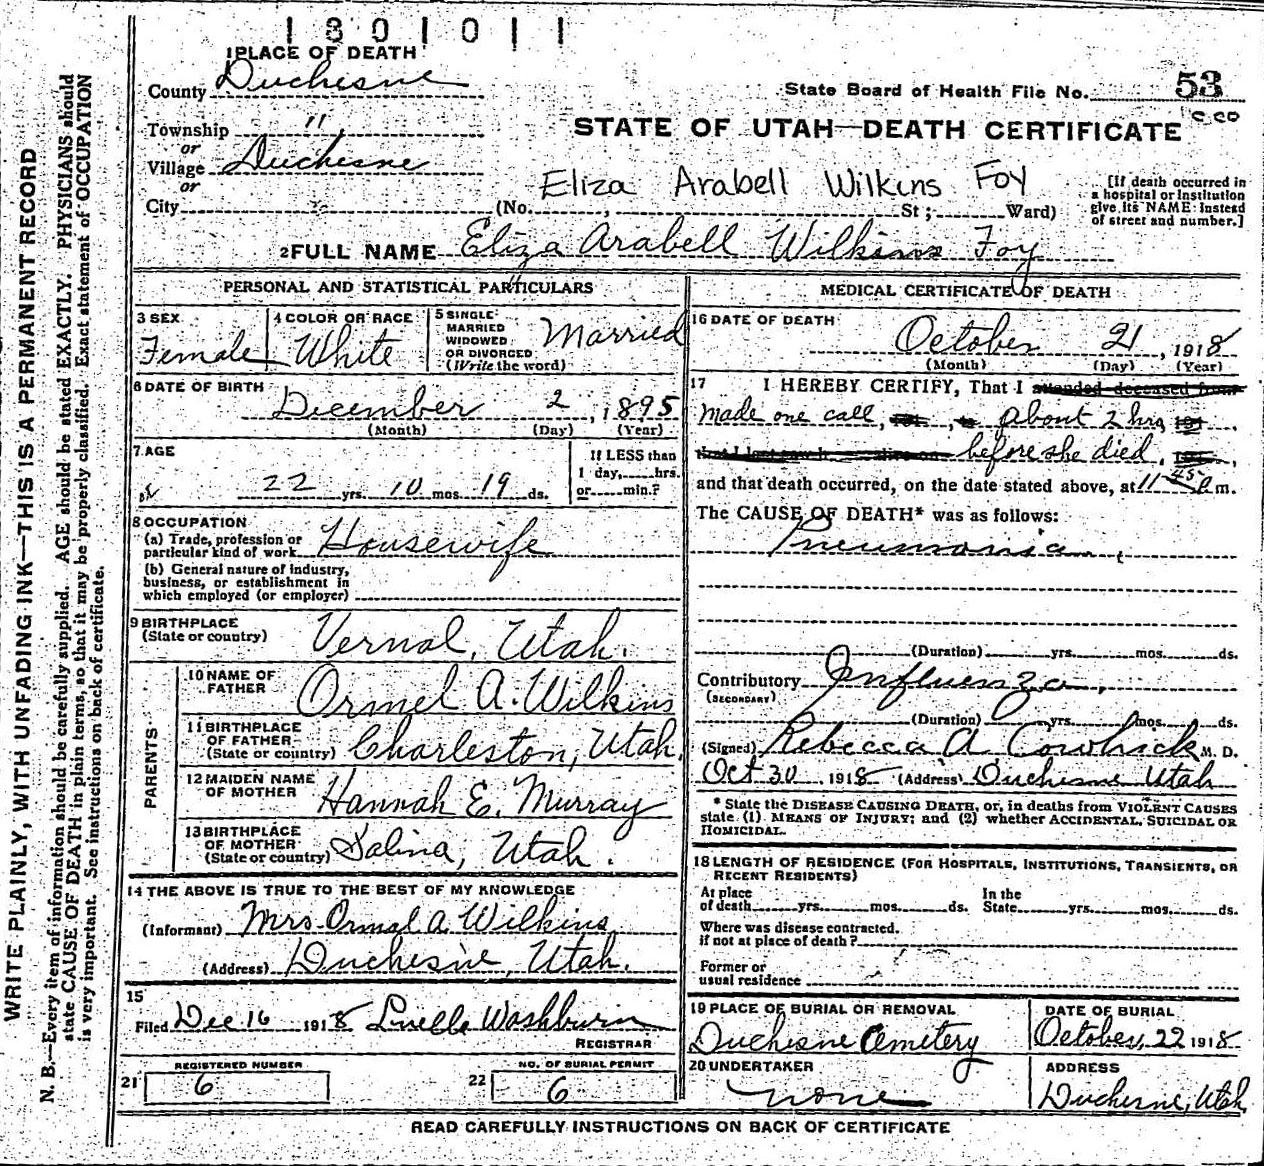 1301011
1 PLACE OF DEATH
County Duchesne
State Board of Health File No. 53
Township "
or
Village Duchesne
or
City
STATE OF UTAH—DEATH CERTIFICATE
Eliza Arabell Wilkins Foy
(No. , St; Ward)
[If death occurred in
a hospital or Institution
give its NAME instead
of street and number.]
2 FULL NAME Eliza Arabell Wilkins Foy
PERSONAL AND STATISTICAL PARTICULARS
3 SEX
Female
4 COLOR OR RACE
White
5 SINGLE
MARRIED
WIDOWED
OR DIVORCED
(Write the word)
Married
6 DATE OF BIRTH
December 2, 1895
(Month) (Day) (Year)
7 AGE
22 yrs. 10 mos. 19 ds.
If LESS than
1 day, hrs.
or min.?
8 OCCUPATION
(a) Trade, profession or
particular kind of work Housewife
(b) General nature of industry,
business, or establishment in
which employed (or employer)
9 BIRTHPLACE
(State or country) Vernal, Utah.
PARENTS
10 NAME OF
FATHER Ormel A. Wilkins
11 BIRTHPLACE
OF FATHER
(State or country) Charleston, Utah.
12 MAIDEN NAME
OF MOTHER Hannah E. Murray
13 BIRTHPLACE
OF MOTHER
(State or country) Salina, Utah.
14 THE ABOVE IS TRUE TO THE BEST OF MY KNOWLEDGE
(Informant) Mrs. Ormel A. Wilkins
(Address) Duchesne, Utah.
15
Filed Dec 16 1918 Luella Washburn
REGISTRAR
REGISTERED NUMBER
21 6
NO. OF BURIAL PERMIT
22 6
MEDICAL CERTIFICATE OF DEATH
16 DATE OF DEATH
October 21, 1918
(Month) (Day) (Year)
17 I HEREBY CERTIFY, That I attended deceased from
made one call, 191 , to about 2 hrs 191 .
that I last saw h alive on before she died, 191 ,
and that death occurred, on the date stated above, at 11 45 a m.
The CAUSE OF DEATH* was as follows:
Pneumonia,
(Duration) yrs. mos. ds.
Contributory Influenza.
(SECONDARY)
(Duration) yrs. mos. ds.
(Signed) Rebecca A Cowhick M. D.
Oct 30 1918 (Address) Duchesne Utah
* State the DISEASE CAUSING DEATH, or, in deaths from VIOLENT CAUSES
state (1) MEANS OF INJURY; and (2) whether ACCIDENTAL, SUICIDAL OR
HOMICIDAL.
18 LENGTH OF RESIDENCE (FOR HOSPITALS, INSTITUTIONS, TRANSIENTS, OR
RECENT RESIDENTS)
At place
of death yrs. mos. ds.
In the
State yrs. mos. ds.
Where was disease contracted,
if not at place of death?
Former or
usual residence
19 PLACE OF BURIAL OR REMOVAL
Duchesne Cemetery
DATE OF BURIAL
October, 22 1918
20 UNDERTAKER
none
ADDRESS
Duchesne, Utah
READ CAREFULLY INSTRUCTIONS ON BACK OF CERTIFICATE
WRITE PLAINLY, WITH UNFADING INK—THIS IS A PERMANENT RECORD
N. B.—Every item of information should be carefully supplied. AGE should be stated EXACTLY. PHYSICIANS should
state CAUSE OF DEATH in plain terms, so that it may be properly classified. Exact statement of OCCUPATION
is very important. See instructions on back of certificate.